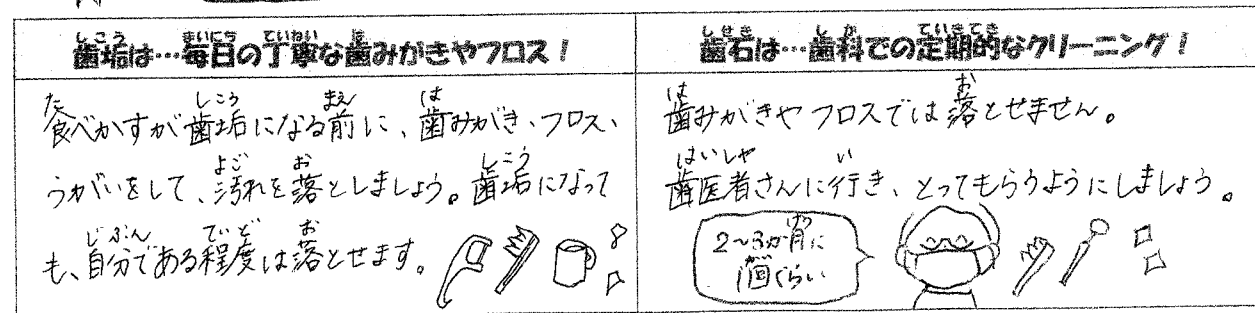 歯垢は…毎日の丁寧な歯みがきやフロス!
食べかすが歯垢になる前に、歯みがき、フロス、
うがいをして、汚れを落としましょう。歯垢になって
も、自分である程度は落とせます。
歯石は…歯科での定期的なクリーニング!
歯みがきやフロスでは落とせません。
歯医者さんに行き、とってもらうようにしましょう。
2〜3か月に
1回くらい